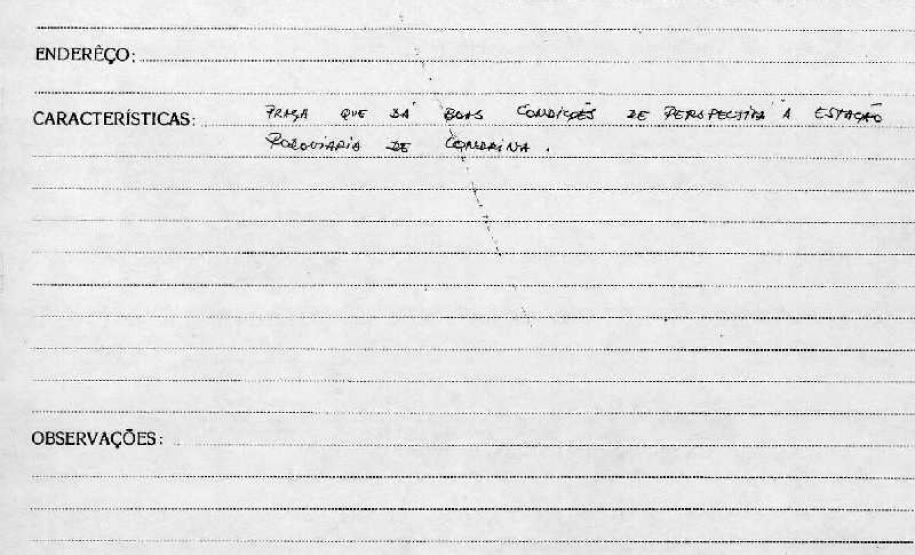 ENDERÊÇO:
CARACTERÍSTICAS: PRAÇA QUE DÁ BOAS CONDIÇÕES DE PERSPECTIVA À ESTAÇÃO
RODOVIARIA DE LONDRINA.
OBSERVAÇÕES: